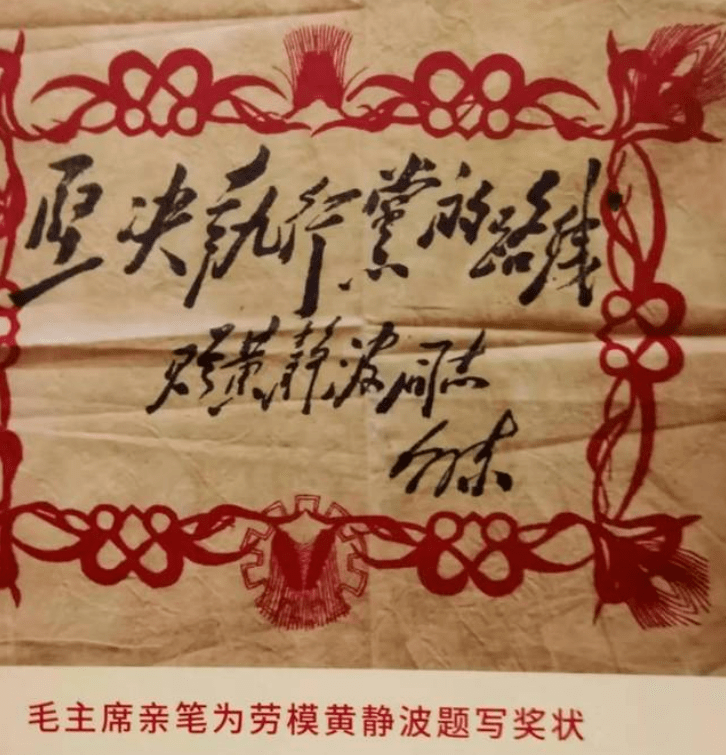 坚决执行黨的路线
贈黄静波同志
泽东
毛主席亲笔为劳模黄静波题写奖状